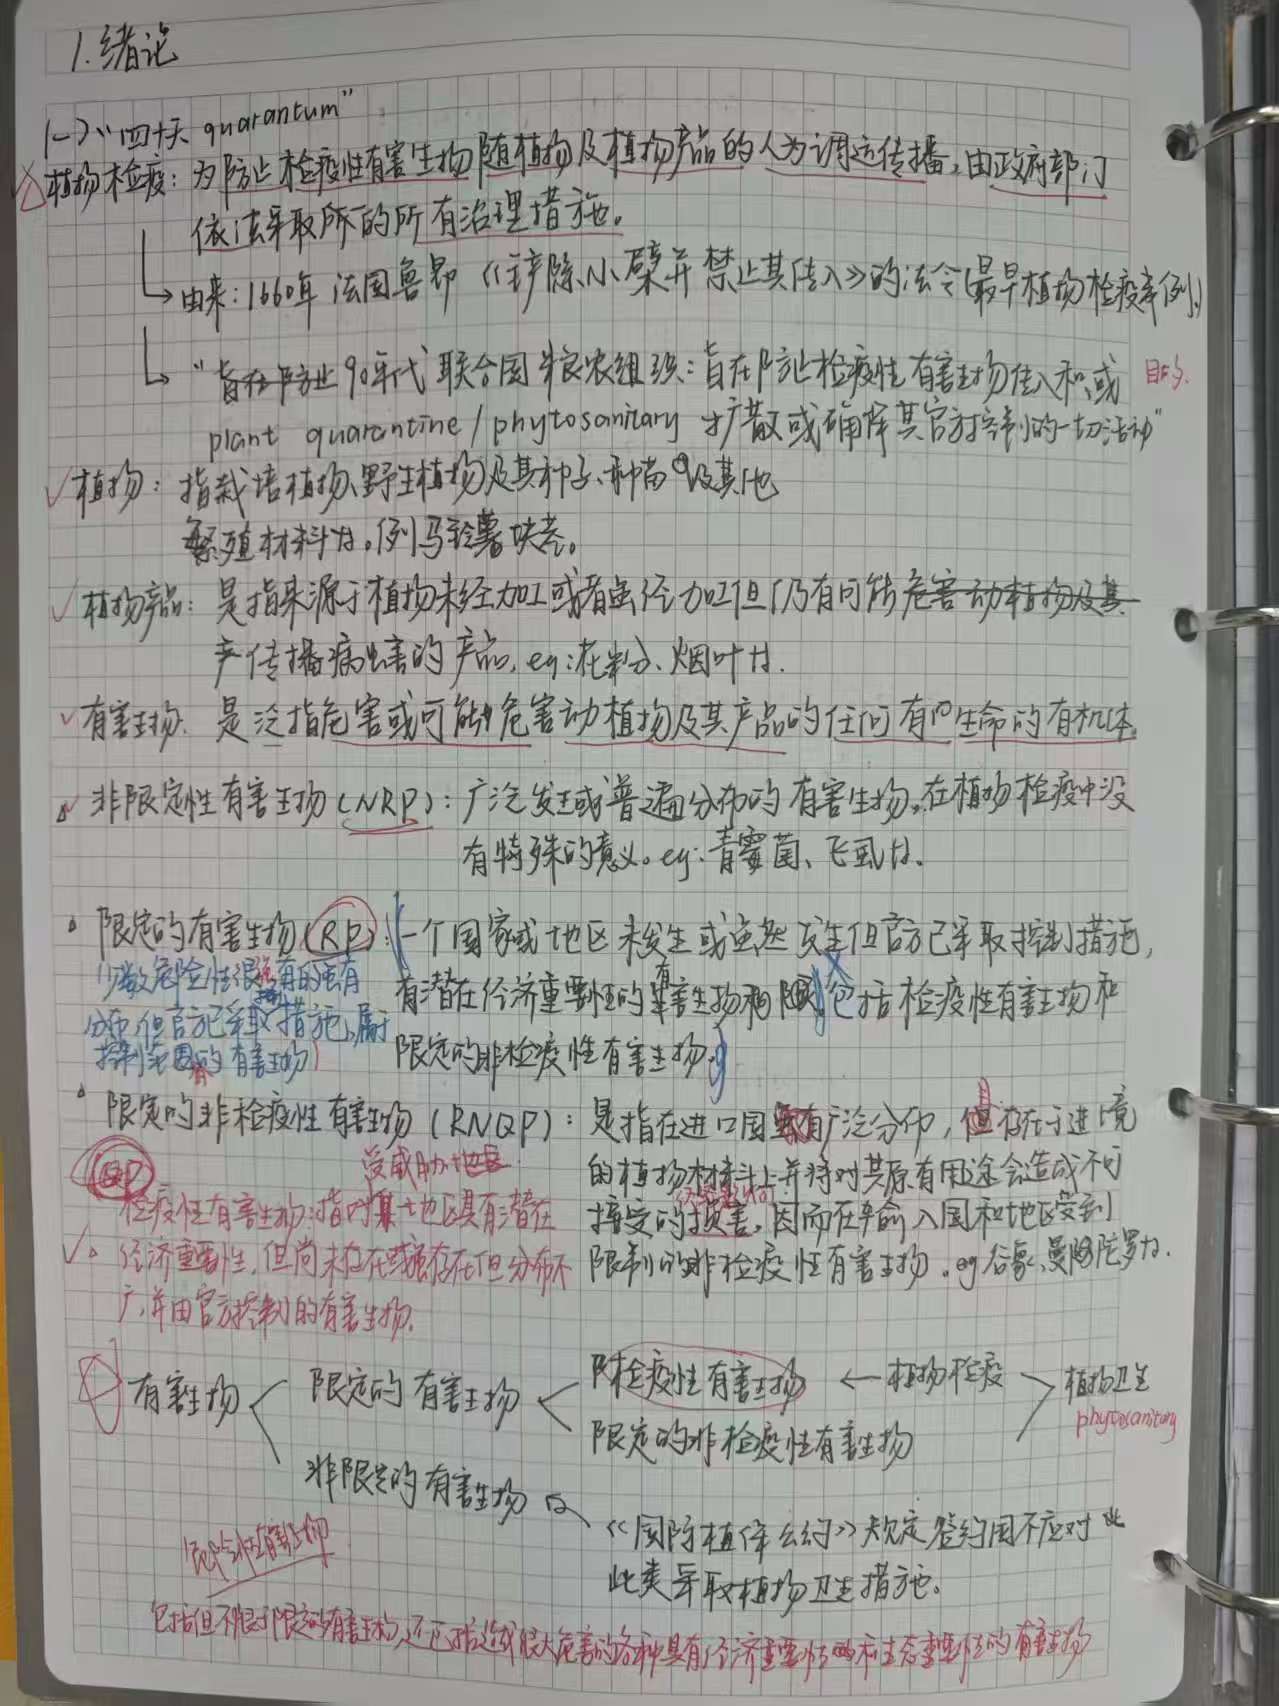 1. 绪论
(一) "四十天 quarantum"
植物检疫: 为防止检疫性有害生物随植物及植物产品的人为调运传播,由政府部门
依法采取所的所有治理措施。
由来: 1660年 法国鲁昂《铲除小檗并禁止其传入》的法令(最早植物检疫案例)
"旨在防止 90年代 联合国粮农组织: 旨在防止检疫性有害生物传入和或 目的
plant quarantine / phytosanitary 扩散或确保其官方控制的一切活动"
植物: 指栽培植物、野生植物及其种子、种苗及其他
繁殖材料廿。例马铃薯块茎。
植物产品: 是指来源于植物未经加工或者虽经加工但仍有可能危害动植物及其
产传播病虫害的产品, eg: 花粉、烟叶廿.
有害生物: 是泛指危害或可能危害动植物及其产品的任何有的生命的有机体.
非限定性有害生物(NRP): 广泛发生或普遍分布的有害生物,在植物检疫中没
有特殊的意义。eg: 青霉菌、飞虱廿.
限定的有害生物(RP): 一个国家或地区未发生或虽然发生但官方已采取控制措施,
有潜在经济重要性的有害生物和 包括检疫性有害生物和
限定的非检疫性有害生物。
少数危险性很 有的虽有
分布,但官方已采取措施,属于
控制范围的有害生物
限定的非检疫性有害生物(RNQP): 是指在进口国 有广泛分布, 但存在于进境
的植物材料上并将对其原有用途会造成不可
接受的损害, 因而在输入国和地区受到
限制的非检疫性有害生物. eg 谷象、曼陀罗廿.
(QP) 受威胁地区
检疫性有害生物: 指对某地区具有潜在
经济重要性, 但尚未存在或虽存在但分布不
广,并由官方控制的有害生物.
有害生物 限定的有害生物 检疫性有害生物 ← 植物检疫 植物卫生
限定的非检疫性有害生物 phytosanitary
非限定的有害生物
《国际植保公约》规定签约国不应对此
此类采取植物卫生措施。
危险性有害生物
包括但不限于限定的有害生物,还包括造成很大危害的各种具有经济重要性和生态重要性的有害生物